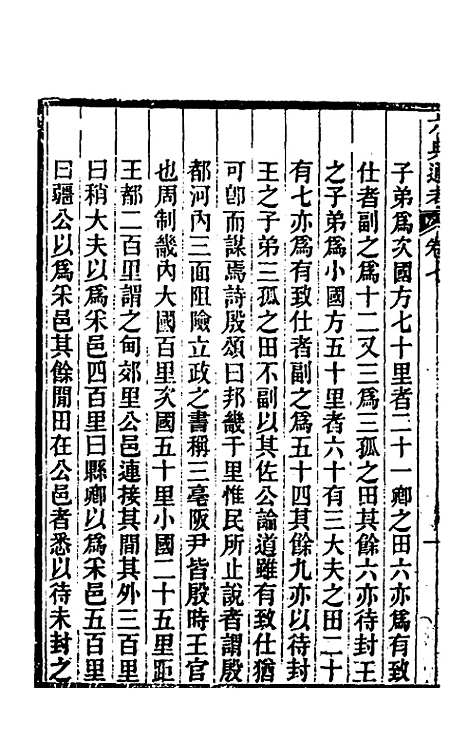 六典通考 卷七
子弟爲次國方七十里者二十一卿之田六亦爲有致
仕者副之爲十二又三爲三孤之田其餘六亦待封王
之子弟爲小國方五十里者六十有三大夫之田二十
有七亦爲有致仕者副之爲五十四其餘九亦以待封
王之子弟三孤之田不副以其佐公論道雖有致仕猶
可卽而謀焉詩殷頌曰邦畿千里惟民所止說者謂殷
都河內三面阻險立政之書稱三亳阪尹皆殷時王官
也周制畿內大國百里次國五十里小國二十五里距
王都二百里謂之甸郊里公邑連接其間其外三百里
曰稍大夫以爲采邑四百里曰縣卿以爲采邑五百里
曰疆公以爲采邑其餘閒田在公邑者悉以待未封之